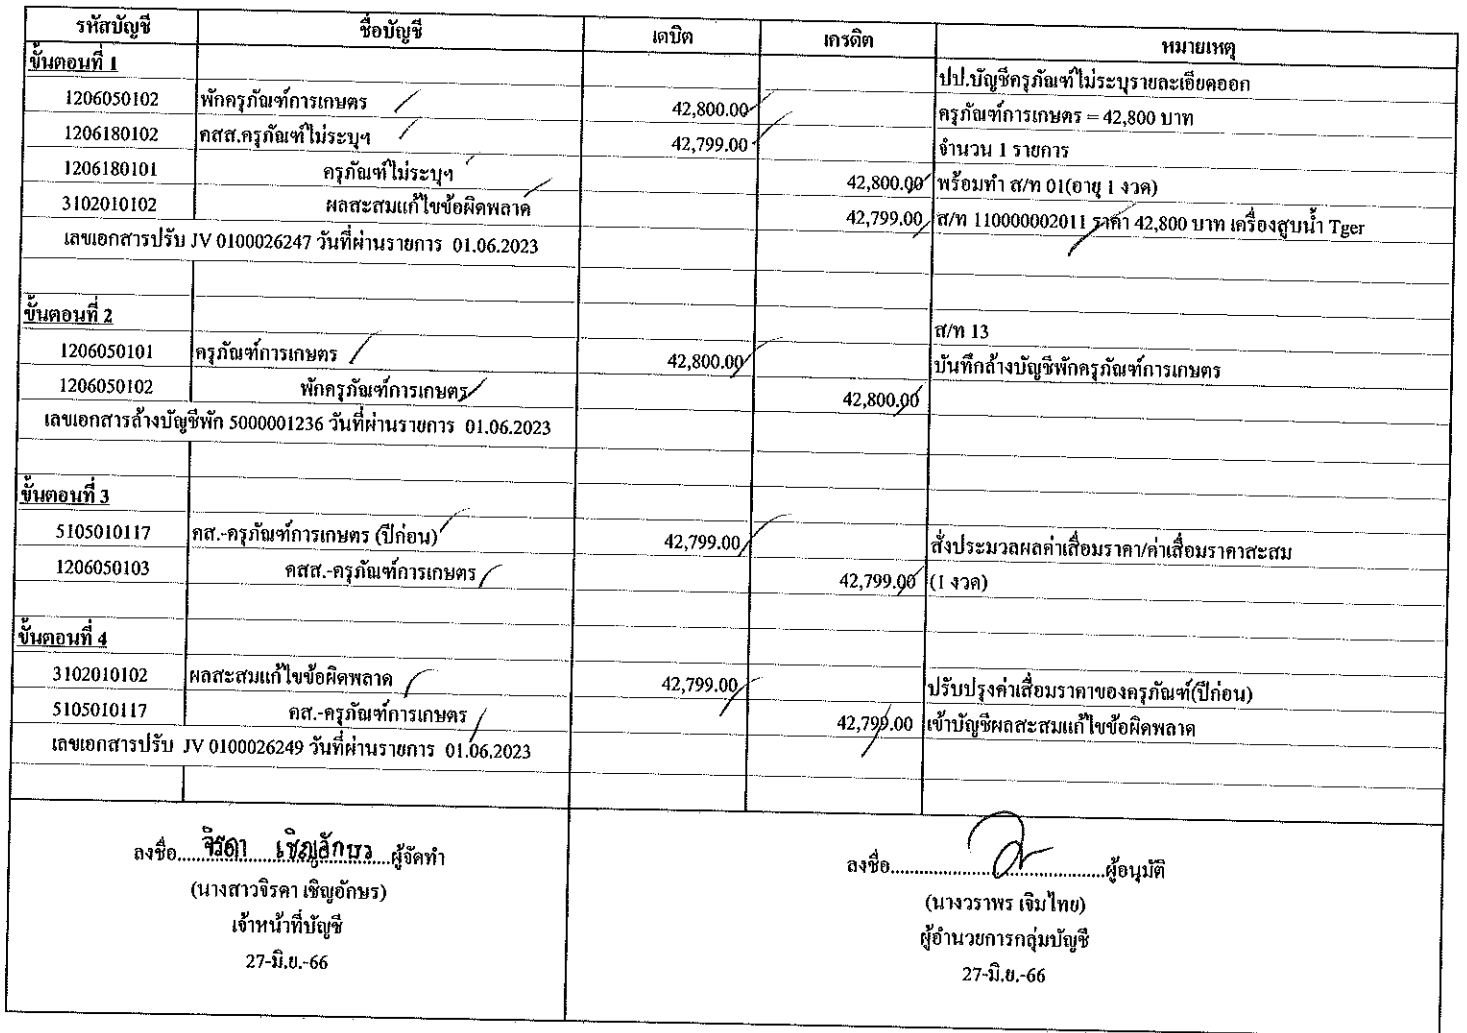 รหัสบัญชี ชื่อบัญชี เดบิต เครดิต หมายเหตุ
ขั้นตอนที่ 1 ปป.บัญชีครุภัณฑ์ไม่ระบุรายละเอียดออก
1206050102 พักครุภัณฑ์การเกษตร 42,800.00 ครุภัณฑ์การเกษตร = 42,800 บาท
1206180102 คสส.ครุภัณฑ์ไม่ระบุฯ 42,799.00 จำนวน 1 รายการ
1206180101 ครุภัณฑ์ไม่ระบุฯ 42,800.00 พร้อมทำ ส/ท 01(อายุ 1 งวด)
3102010102 ผลสะสมแก้ไขข้อผิดพลาด 42,799.00 ส/ท 110000002011 ราคา 42,800 บาท เครื่องสูบน้ำ Tger
เลขเอกสารปรับ JV 0100026247 วันที่ผ่านรายการ 01.06.2023
ขั้นตอนที่ 2 ส/ท 13
1206050101 ครุภัณฑ์การเกษตร 42,800.00 บันทึกล้างบัญชีพักครุภัณฑ์การเกษตร
1206050102 พักครุภัณฑ์การเกษตร 42,800.00
เลขเอกสารล้างบัญชีพัก 5000001236 วันที่ผ่านรายการ 01.06.2023
ขั้นตอนที่ 3
5105010117 คส.-ครุภัณฑ์การเกษตร (ปีก่อน) 42,799.00 สั่งประมวลผลค่าเสื่อมราคา/ค่าเสื่อมราคาสะสม
1206050103 คสส.-ครุภัณฑ์การเกษตร 42,799.00 (1 งวด)
ขั้นตอนที่ 4
3102010102 ผลสะสมแก้ไขข้อผิดพลาด 42,799.00 ปรับปรุงค่าเสื่อมราคาของครุภัณฑ์(ปีก่อน)
5105010117 คส.-ครุภัณฑ์การเกษตร 42,799.00 เข้าบัญชีผลสะสมแก้ไขข้อผิดพลาด
เลขเอกสารปรับ JV 0100026249 วันที่ผ่านรายการ 01.06.2023
ลงชื่อ.....จิรดา เชิญอักษร.....ผู้จัดทำ
(นางสาวจิรดา เชิญอักษร)
เจ้าหน้าที่บัญชี
27-มิ.ย.-66
ลงชื่อ..........ผู้อนุมัติ
(นางวราพร เจิมไทย)
ผู้อำนวยการกลุ่มบัญชี
27-มิ.ย.-66